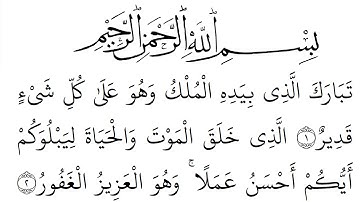 بِسْمِ اللَّهِ الرَّحْمَٰنِ الرَّحِيمِ
تَبَارَكَ الَّذِى بِيَدِهِ الْمُلْكُ وَهُوَ عَلَىٰ كُلِّ شَىْءٍ
قَدِيرٌ ﴿١﴾ الَّذِى خَلَقَ الْمَوْتَ وَالْحَيَاةَ لِيَبْلُوَكُمْ
أَيُّكُمْ أَحْسَنُ عَمَلًا ۚ وَهُوَ الْعَزِيزُ الْغَفُورُ ﴿٢﴾